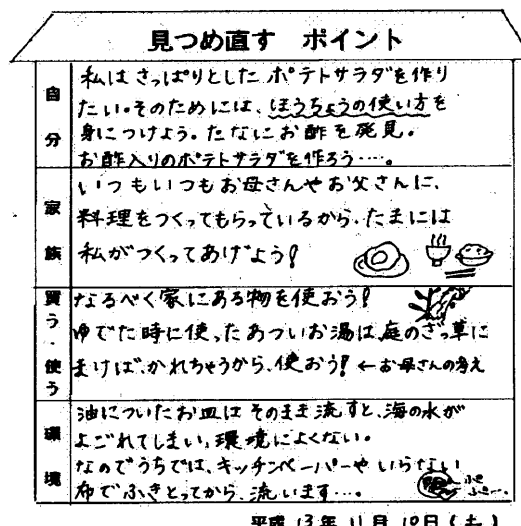 見つめ直す ポイント
自分
私はさっぱりとしたポテトサラダを作り
たい。そのためには、ほうちょうの使い方を
身につけよう。たなにお酢を発見。
お酢入りのポテトサラダを作ろう…。
家族
いつもいつもお母さんやお父さんに、
料理をつくってもらっているから、たまには
私がつくってあげよう!
買う・使う
なるべく家にある物を使おう!
ゆでた時に使ったあついお湯は、庭のざっ草に
まけば、かれちゃうから、使おう! ←お母さんの考え
環境
油についたお皿はそのまま流すと、海の水が
よごれてしまい、環境によくない。
なのでうちでは、キッチンペーパーやいらない
布でふきとってから、流います…。
平成 13年 11月 10日(土)